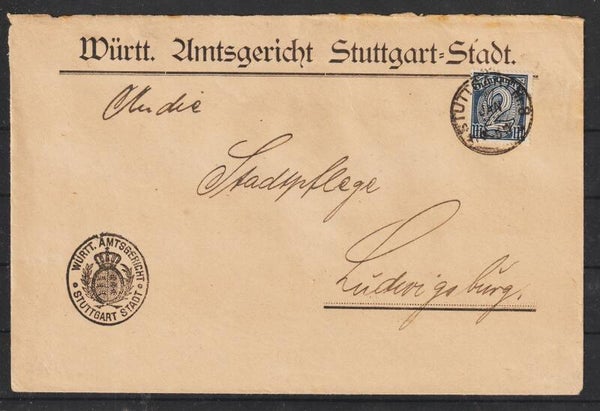 Württ. Amtsgericht Stuttgart-Stadt.
An die
Stadtpflege
Ludwigsburg.
STUTTGART
2
WÜRTT. AMTSGERICHT
STUTTGART STADT